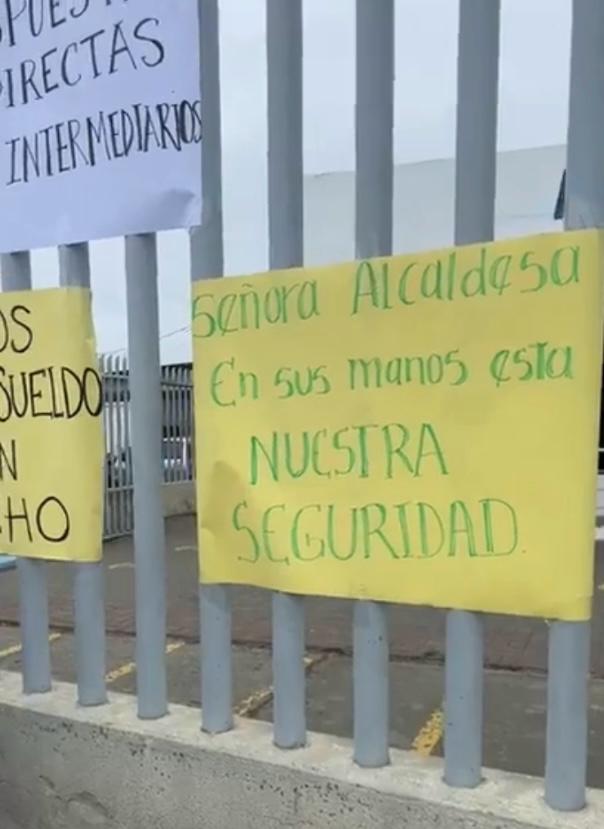 DIRECTAS
INTERMEDIARIOS
OS
SUELDO
N
HO
Señora Alcaldesa
En sus manos esta
NUESTRA
SEGURIDAD.